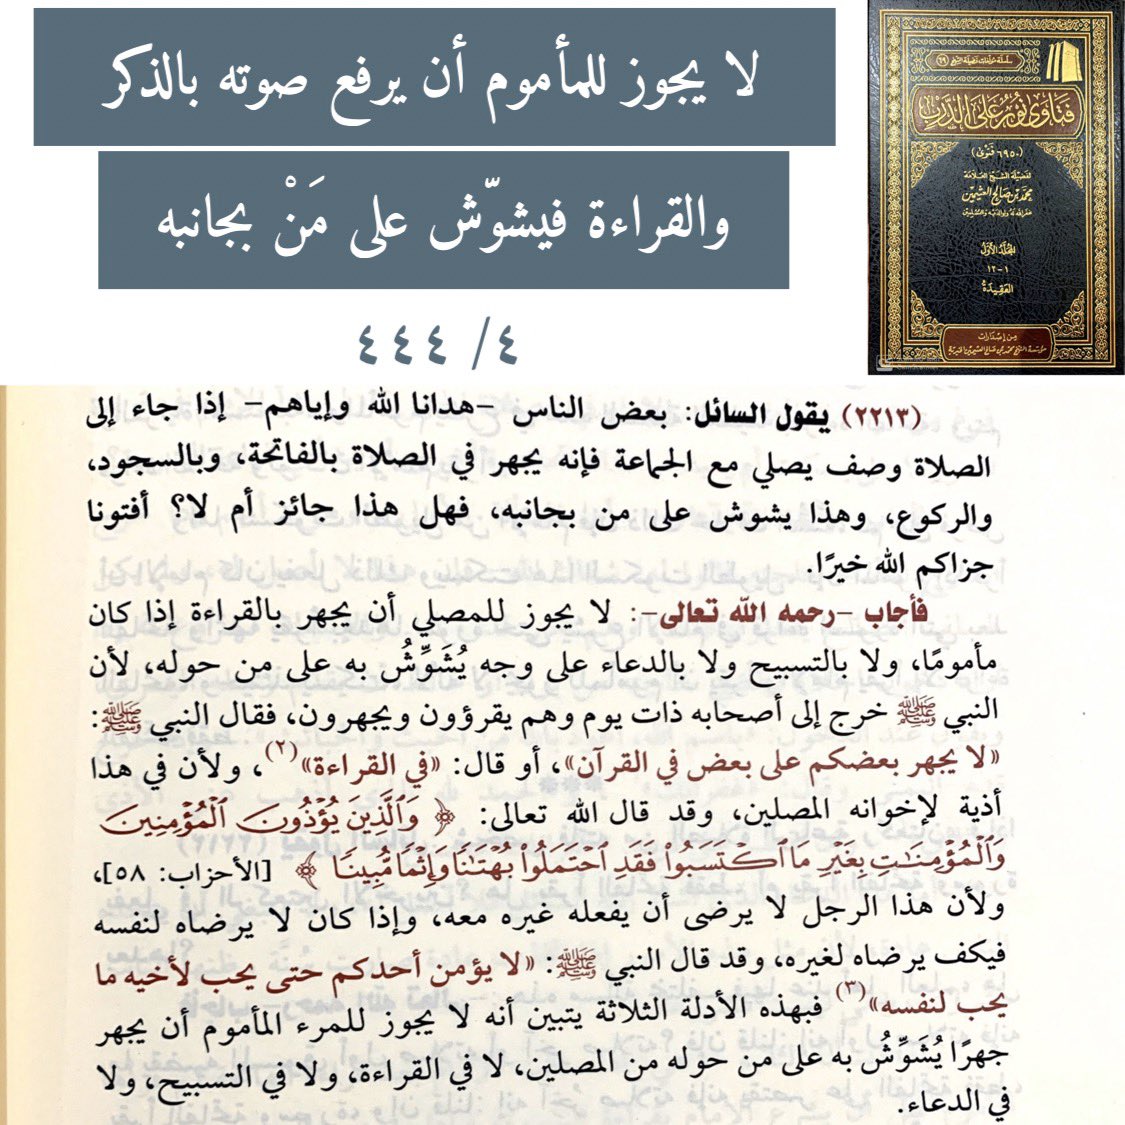 لا يجوز للمأموم أن يرفع صوته بالذكر
والقراءة فيشوّش على مَنْ بجانبه
٤/ ٤٤٤
فتاوى نور على الدرب
(٦٩٥٠ فتوى)
لفضيلة الشيخ العلامة
محمد بن صالح العثيمين
غفر الله له ولوالديه وللمسلمين
المجلد الأول
١-١٢
العقيدة
من إصدارات
مؤسسة الشيخ محمد بن صالح العثيمين الخيرية
(٢٢١٣) يقول السائل: بعض الناس -هدانا الله وإياهم- إذا جاء إلى
الصلاة وصف يصلي مع الجماعة فإنه يجهر في الصلاة بالفاتحة، وبالسجود،
والركوع، وهذا يشوش على من بجانبه، فهل هذا جائز أم لا؟ أفتونا
جزاكم الله خيرًا.
فأجاب -رحمه الله تعالى-: لا يجوز للمصلي أن يجهر بالقراءة إذا كان
مأمومًا، ولا بالتسبيح ولا بالدعاء على وجه يُشَوِّشُ به على من حوله، لأن
النبي ﷺ خرج إلى أصحابه ذات يوم وهم يقرؤون ويجهرون، فقال النبي ﷺ:
«لا يجهر بعضكم على بعض في القرآن»، أو قال: «في القراءة»(٢)، ولأن في هذا
أذية لإخوانه المصلين، وقد قال الله تعالى: ﴿وَٱلَّذِينَ يُؤْذُونَ ٱلْمُؤْمِنِينَ
وَٱلْمُؤْمِنَٰتِ بِغَيْرِ مَا ٱكْتَسَبُوا۟ فَقَدِ ٱحْتَمَلُوا۟ بُهْتَٰنًا وَإِثْمًا مُّبِينًا﴾ [الأحزاب: ٥٨]،
ولأن هذا الرجل لا يرضى أن يفعله غيره معه، وإذا كان لا يرضاه لنفسه
فيكف يرضاه لغيره، وقد قال النبي ﷺ: «لا يؤمن أحدكم حتى يحب لأخيه ما
يحب لنفسه»(٣) فبهذه الأدلة الثلاثة يتبين أنه لا يجوز للمرء المأموم أن يجهر
جهرًا يُشَوِّشُ به على من حوله من المصلين، لا في القراءة، ولا في التسبيح، ولا
في الدعاء.